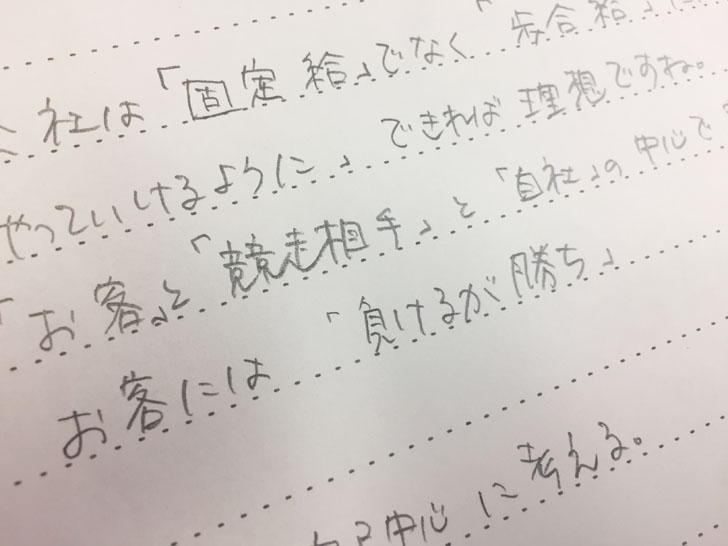 社は「固定給」でなく「歩合給」に
やっていけるように」できれば理想ですね。
「お客」と「競走相手」と「自社」の中心で
お客には「負けるが勝ち」
中心に考える。